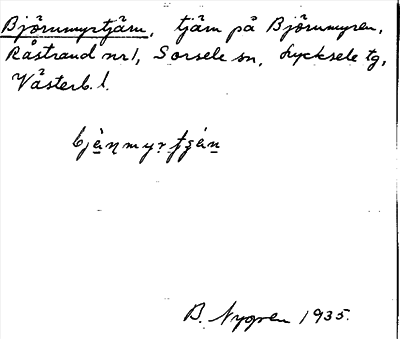 Björnmyrtjärn, tjärn på Björnmyren,
Råstrand nr 1, Sorsele sn, Lycksele tg,
Västerb. l.
B. Nygren 1935.